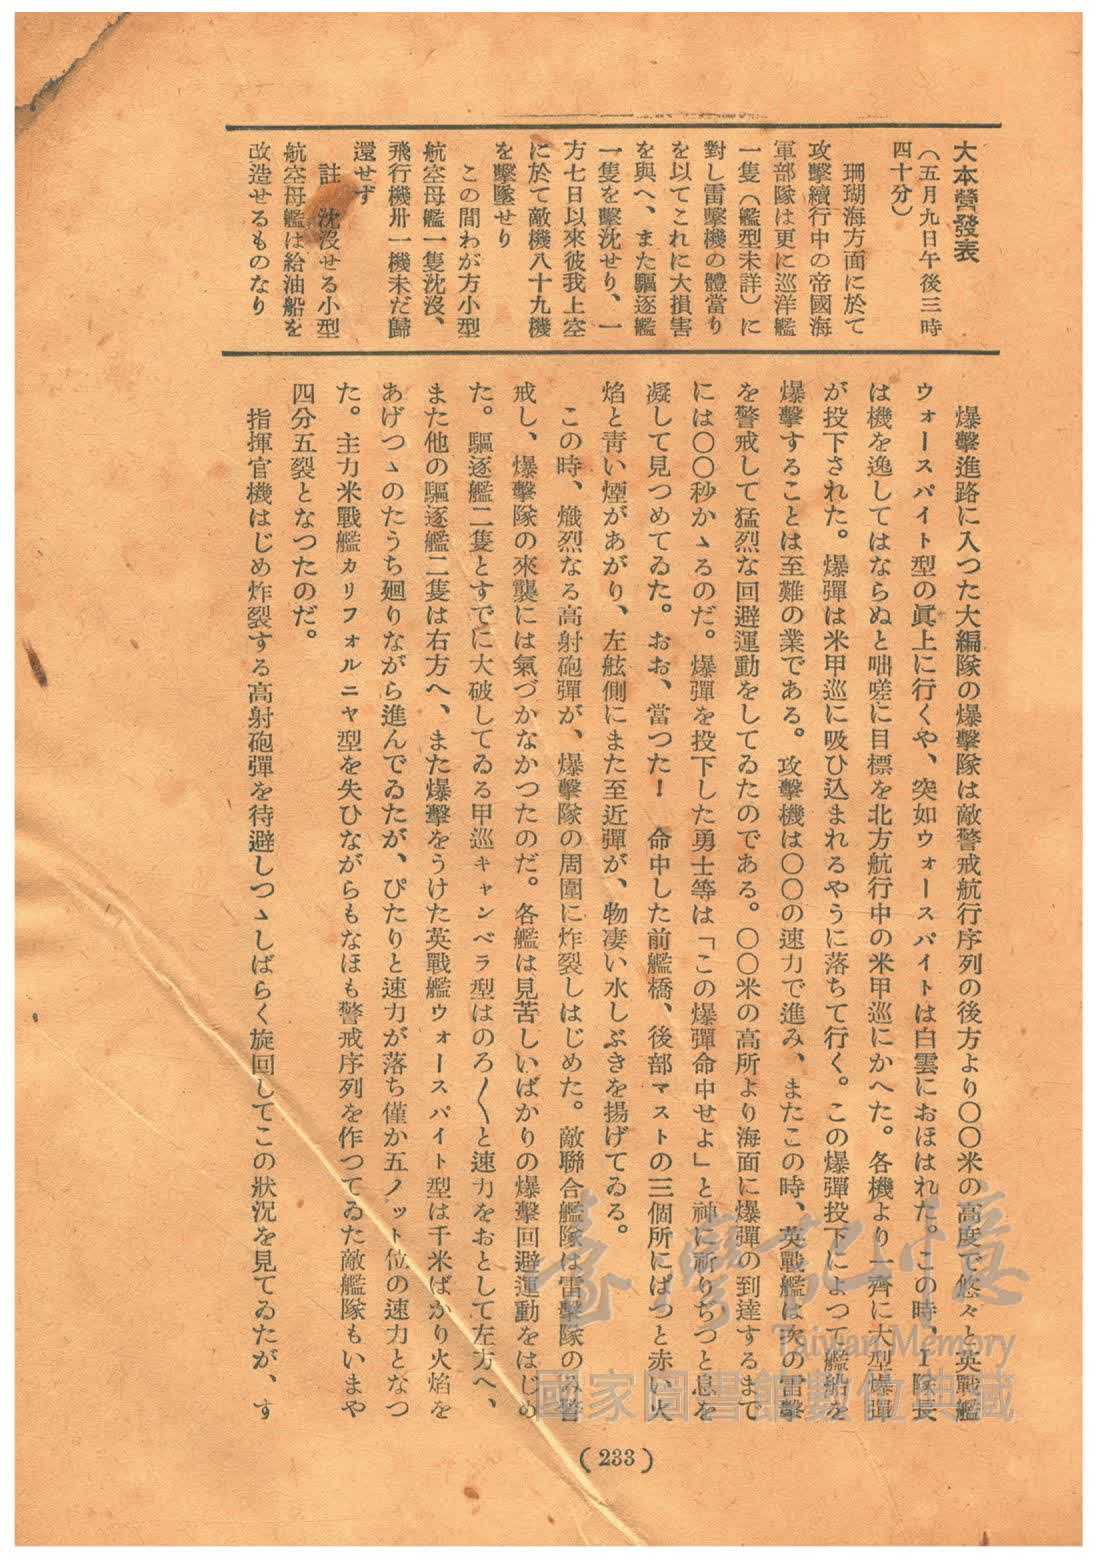 大本營發表
（五月九日午後三時
四十分）
珊瑚海方面に於て
攻擊續行中の帝國海
軍部隊は更に巡洋艦
一隻（艦型未詳）に
對し雷擊機の體當り
を以てこれに大損害
を與へ、また驅逐艦
一隻を擊沈せり、一
方七日以來彼我上空
に於て敵機八十九機
を擊墜せり
この間わが方小型
航空母艦一隻沈沒、
飛行機卅一機未だ歸
還せず
註　沈沒せる小型
航空母艦は給油船を
改造せるものなり
爆擊進路に入つた大編隊の爆擊隊は敵警戒航行序列の後方より〇〇米の高度で悠々と英戰艦
ウォースパイト型の眞上に行くや、突如ウォースパイトは白雲におほはれた。この時、I隊長
は機を逸してはならぬと咄嗟に目標を北方航行中の米甲巡にかへた。各機より一齊に大型爆彈
が投下された。爆彈は米甲巡に吸ひ込まれるやうに落ちて行く。この爆彈投下によつて艦船を
爆擊することは至難の業である。攻擊機は〇〇の速力で進み、またこの時、英戰艦は次の雷擊
を警戒して猛烈な回避運動をしてゐたのである。〇〇米の高所より海面に爆彈の到達するまで
には〇〇秒かゝるのだ。爆彈を投下した勇士等は「この爆彈命中せよ」と神に祈りぢつと息を
凝して見つめてゐた。おお、當つた！　命中した前艦橋、後部マストの三個所にぱつと赤い火
焰と靑い煙があがり、左舷側にまた至近彈が、物凄い水しぶきを揚げてゐる。
この時、熾烈なる高射砲彈が、爆擊隊の周圍に炸裂しはじめた。敵聯合艦隊は雷擊隊のみ警
戒し、爆擊隊の來襲には氣づかなかつたのだ。各艦は見苦しいばかりの爆擊回避運動をはじめ
た。驅逐艦二隻とすでに大破してゐる甲巡キャンベラ型はのろ〳〵と速力をおとして左方へ、
また他の驅逐艦二隻は右方へ、また爆擊をうけた英戰艦ウォースパイト型は千米ばかり火焰を
あげつゝのたうち廻りながら進んでゐたが、ぴたりと速力が落ち僅か五ノット位の速力となつ
た。主力米戰艦カリフォルニヤ型を失ひながらもなほも警戒序列を作つてゐた敵艦隊もいまや
四分五裂となつたのだ。
指揮官機はじめ炸裂する高射砲彈を待避しつゝしばらく旋回してこの狀況を見てゐたが、す
(233)
臺灣記憶
Taiwan Memory
國家圖書館數位典藏